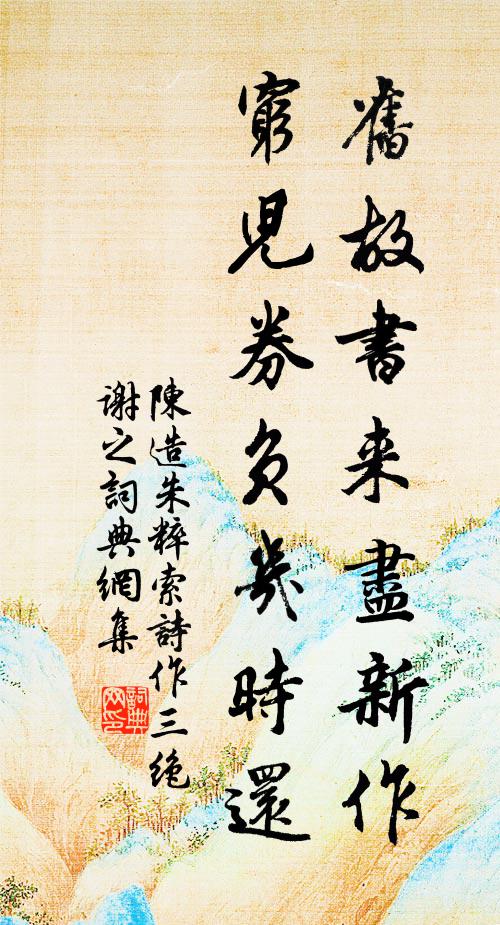 舊故書来盡新作
窮児券負幾時還
陳造朱粹索詩作三绝
謝之詞典網集
詞典
网印